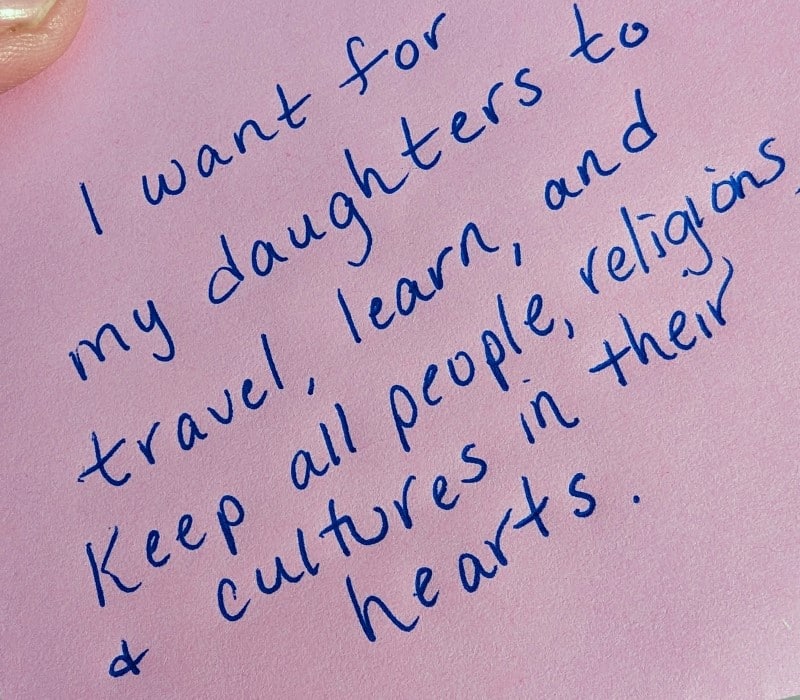 I want for
my daughters to
travel, learn, and
Keep all people, religions,
& cultures in their
hearts.